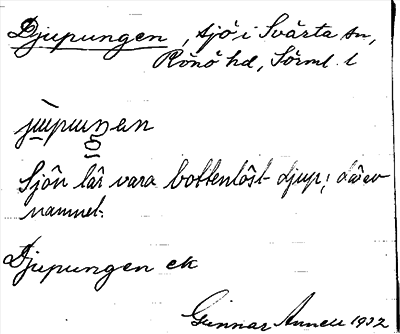 Djupungen, sjö i Svärta sn,
Rönö hd, Sörml. l
jùpuŋen
Sjön lär vara bottenlöst djup; därav
namnet.
Djupungen ek
Gunnar Annell 1932